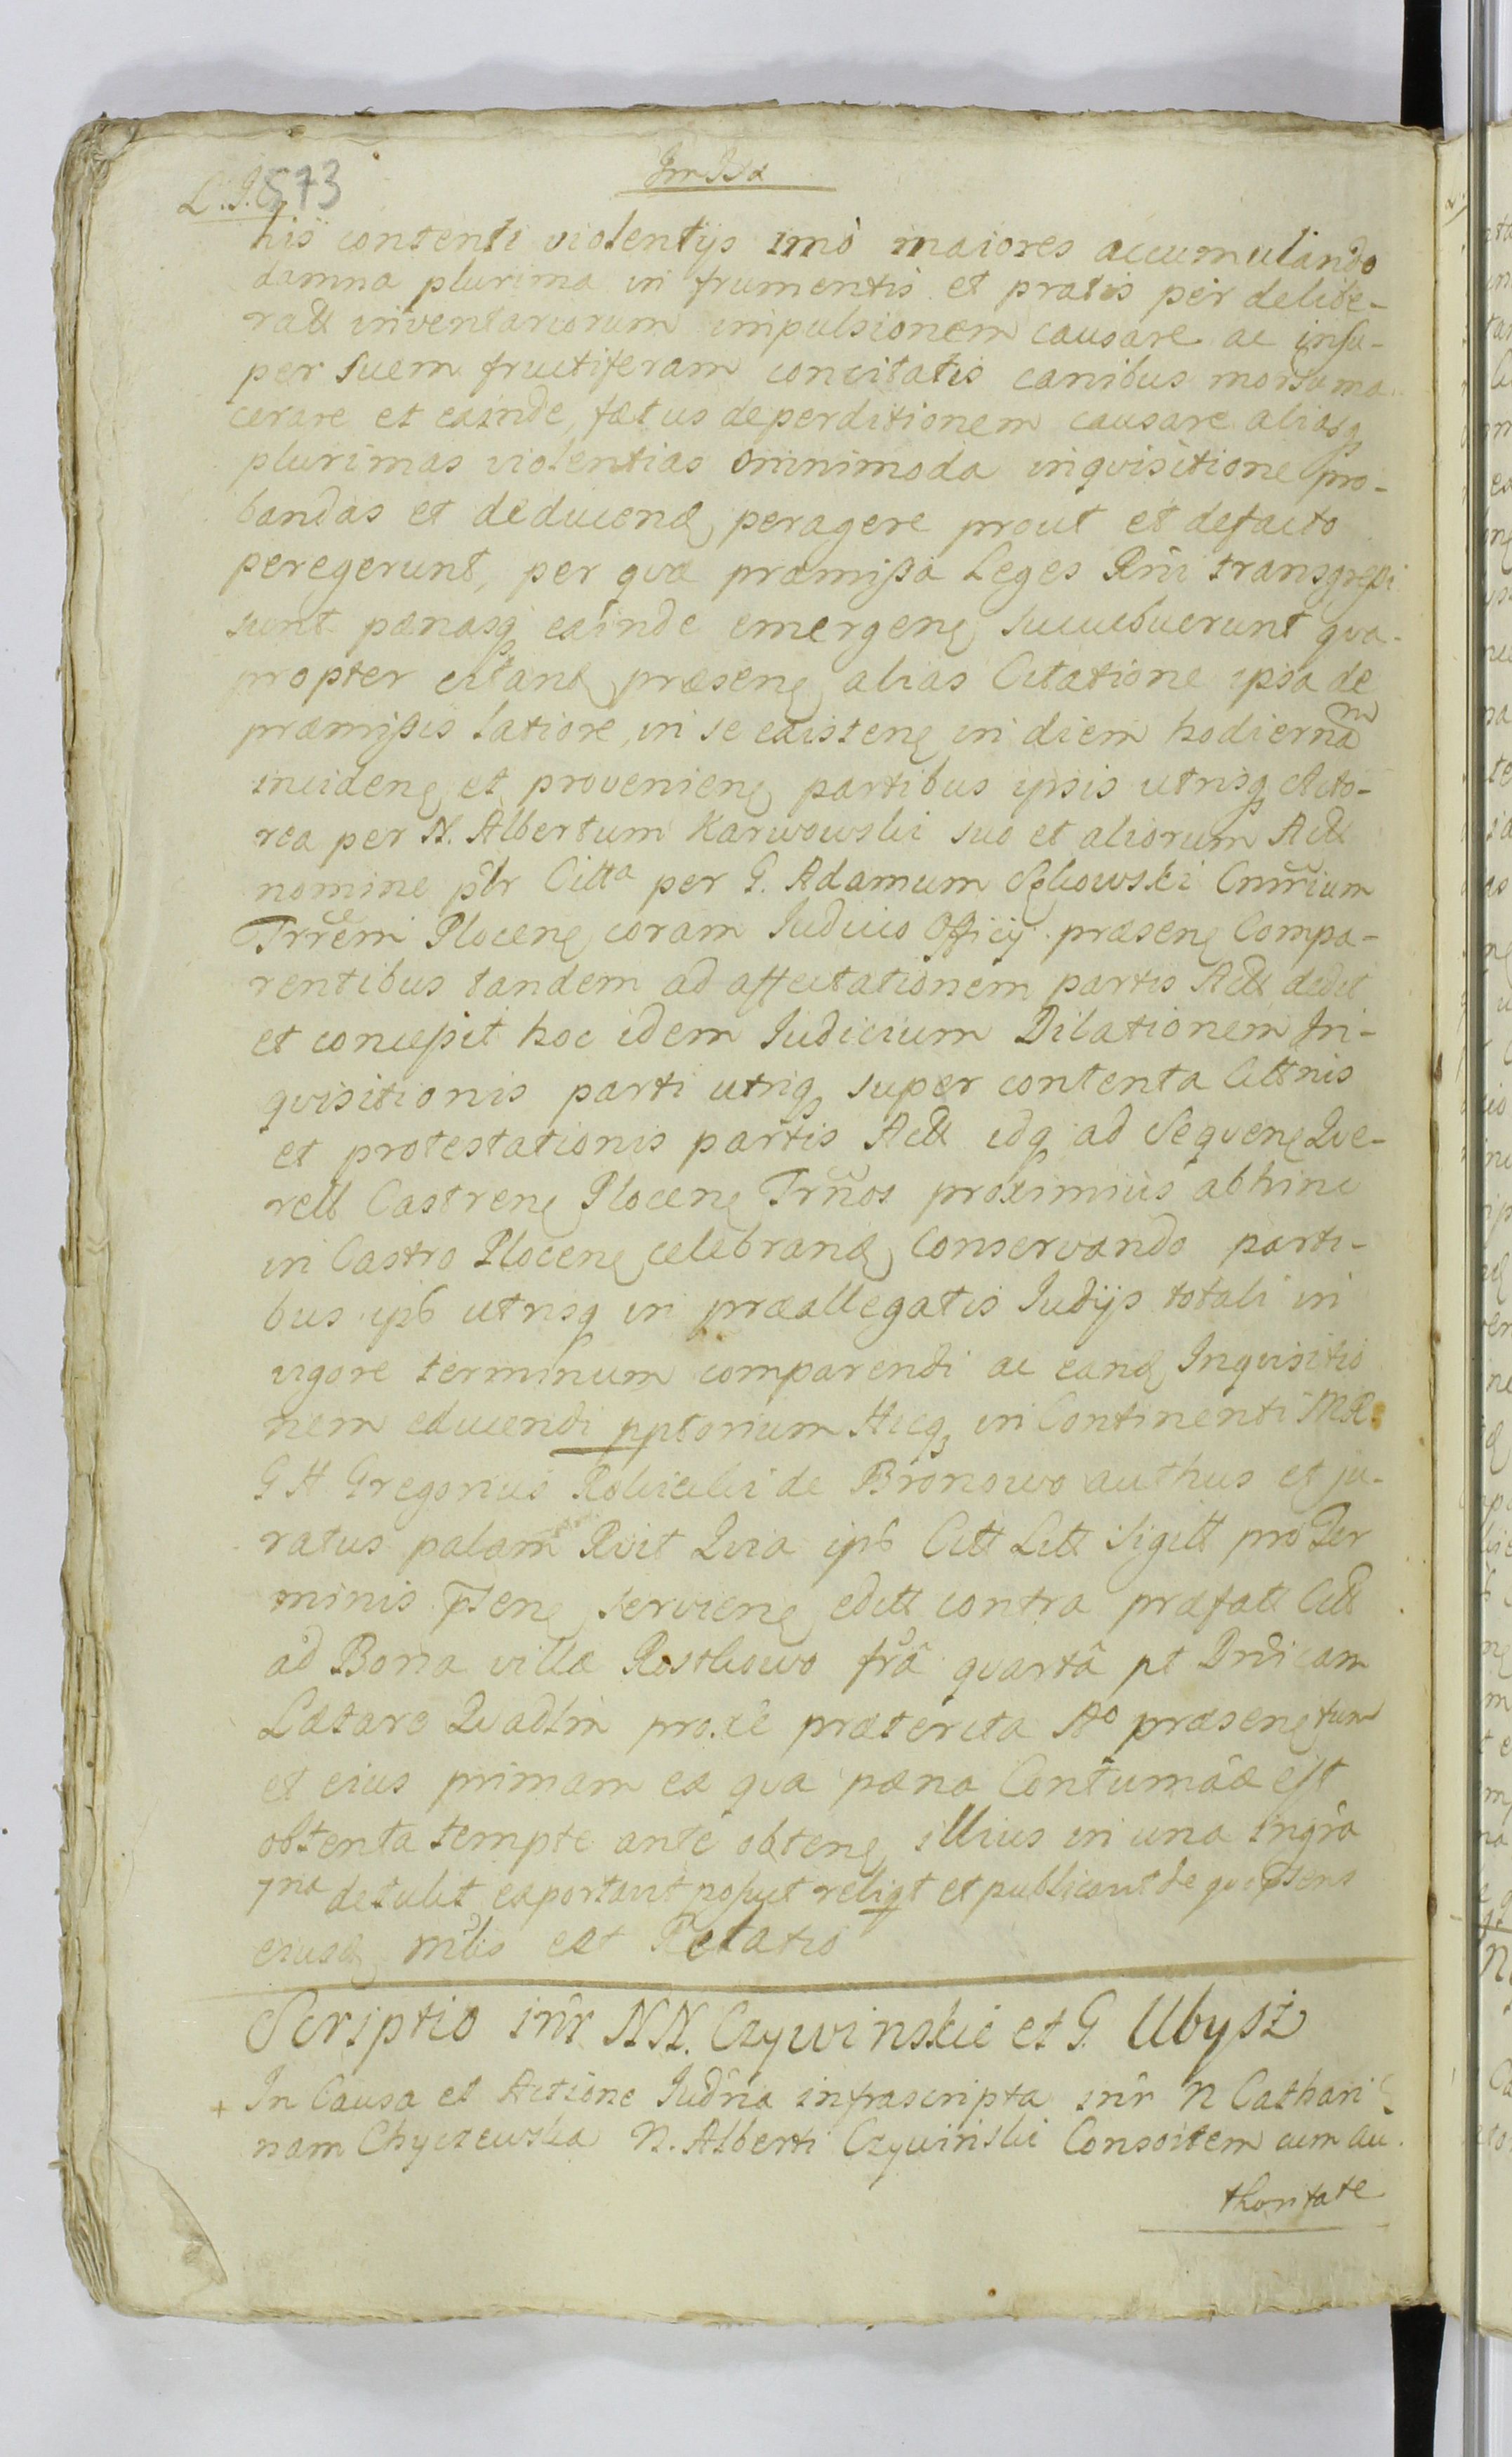 L. J. 573
his contenti violentijs imò maiores accumulando
damna plurima in frumentis et pratis per delibe-
ratt inventariorum impulsionem causare ac insu-
per suem fructiferam concitatis canibus morsu ma-
cerare et exinde, fætus deperditionem causare aliasq
plurimas violentias omnimoda inqvisitione pro-
bandas et deducend peragere prout et defacto
peregerunt, per qvæ præmissa Leges Rni transgressi
sunt pænasq exinde emergen succubuerunt qva-
propter citand præsen alias Citatione ipsa de
præmissis latiore in se existen in diem hodiernam
inciden et provenien partibus ipsis utrisq Acto-
rea per N. Albertum Karwowski suo et aliorum Actt
nomine plr Citta per G. Adamum Cnrium
Trrem Plocen coram Iudicio Officij præsen Compa-
rentibus tandem ad affectationem partis Actt dedit
et concessit hoc idem Iudicium Dilationem In-
qvisitionis parti utriq super contenta Cittnis
et protestationis partis Actt idq ad Seqven Qve-
rell Castren Plocen Trnos proximius abhinc
in Castro Plocen celebrand Conservando parti-
bus ips utrisq in præallegatis Iudijs totali in
vigore terminum comparendi ac eand Inqvisitio
nem educendi pptorium Hicq in Continenti MR
G H Gregorius de Bronowo authus et ju-
ratus palam Rvit Qvia ips Citt Litt Sigill pro Ter
minis psen servien editt contra præfatt Citt
ad Bona villæ Rostkowo fra qvarta pt Dndicam
Lætare Qvadlm proxe præterita Ao præsen tum
et eius primam ex qva pæna Contumaæ est
obtenta tempte ante obten illius in una ingra
detulit exportavit posuit reliqt et publicavit de qvo psens
eiusd mlis est Relatio
Scriptio intr NN. Czywinskie et G. Ubysz
+ In Causa et Actione Iudria infrascripta intr N Cathari
nam Chyczewska N. Alberti Czywinski Consortem cum au
thoritate